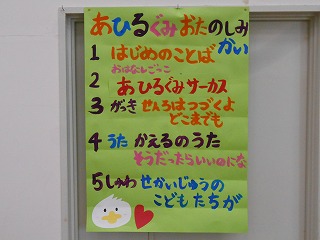 あひるぐみ おたのしみ
かい
1 はじめのことば
おはなしごっこ
2 あひるぐみサーカス
3 がっき せんろはつづくよ
どこまでも
4 うた かえるのうた
そうだったらいいのにな
5 しゅわ せかいじゅうの
こどもたちが